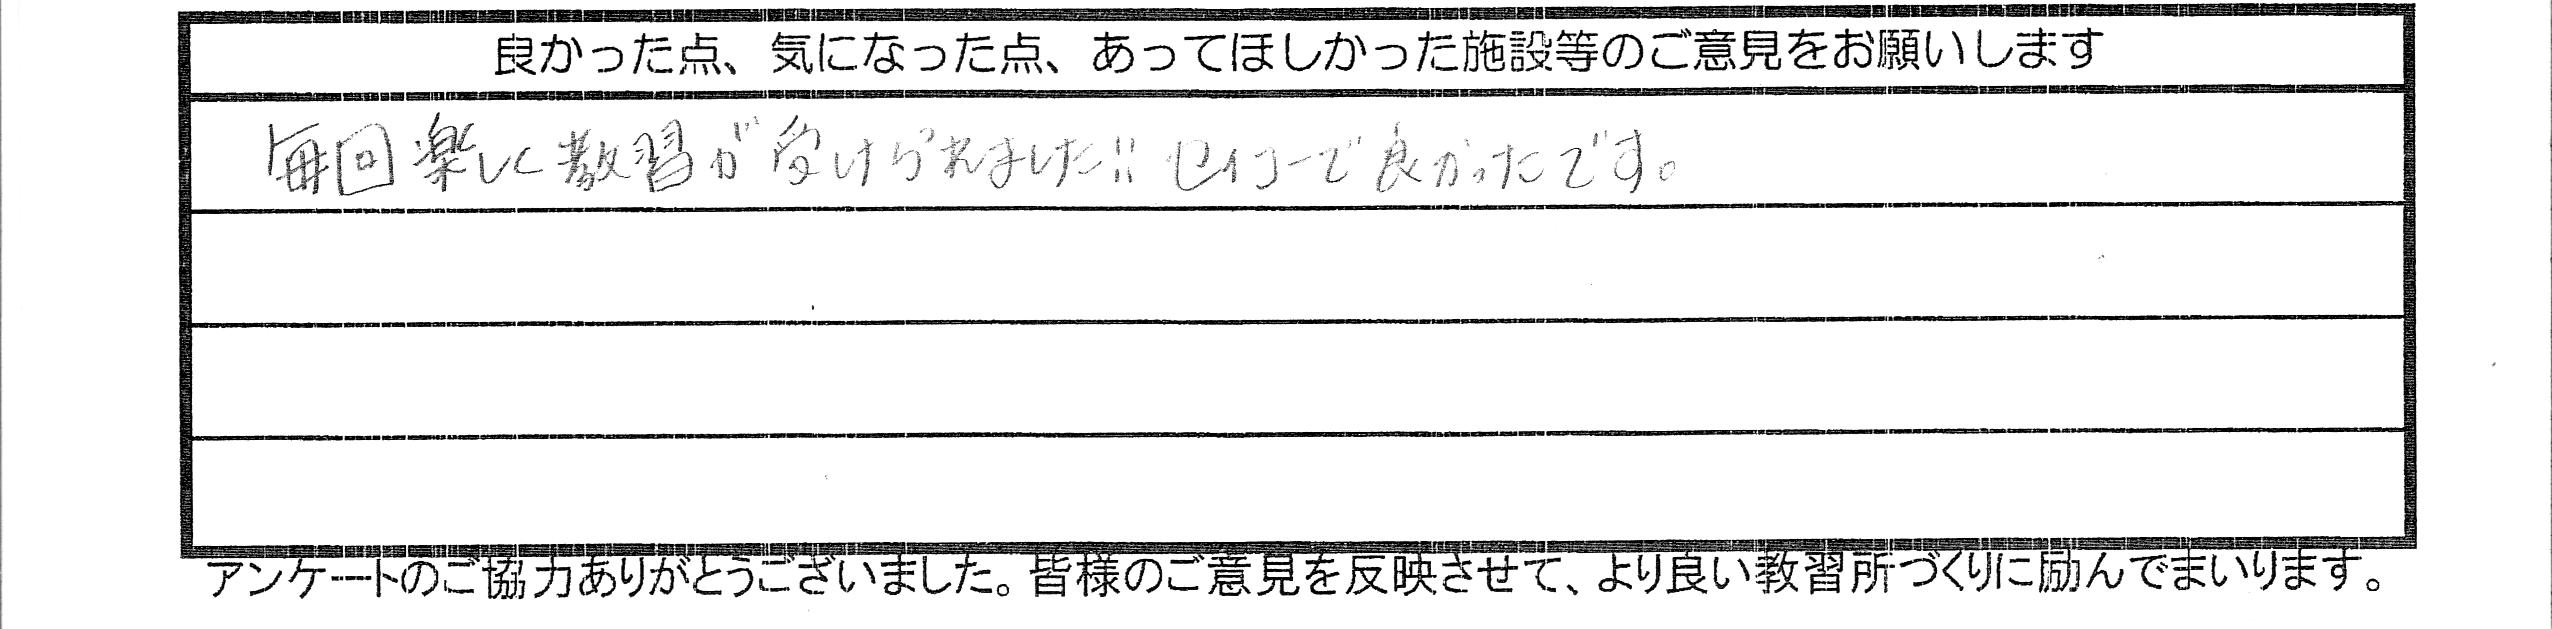 良かった点、気になった点、あってほしかった施設等のご意見をお願いします
毎回楽しく教習が受けられました!! セイコーで良かったです。
アンケートのご協力ありがとうございました。皆様のご意見を反映させて、より良い教習所づくりに励んでまいります。